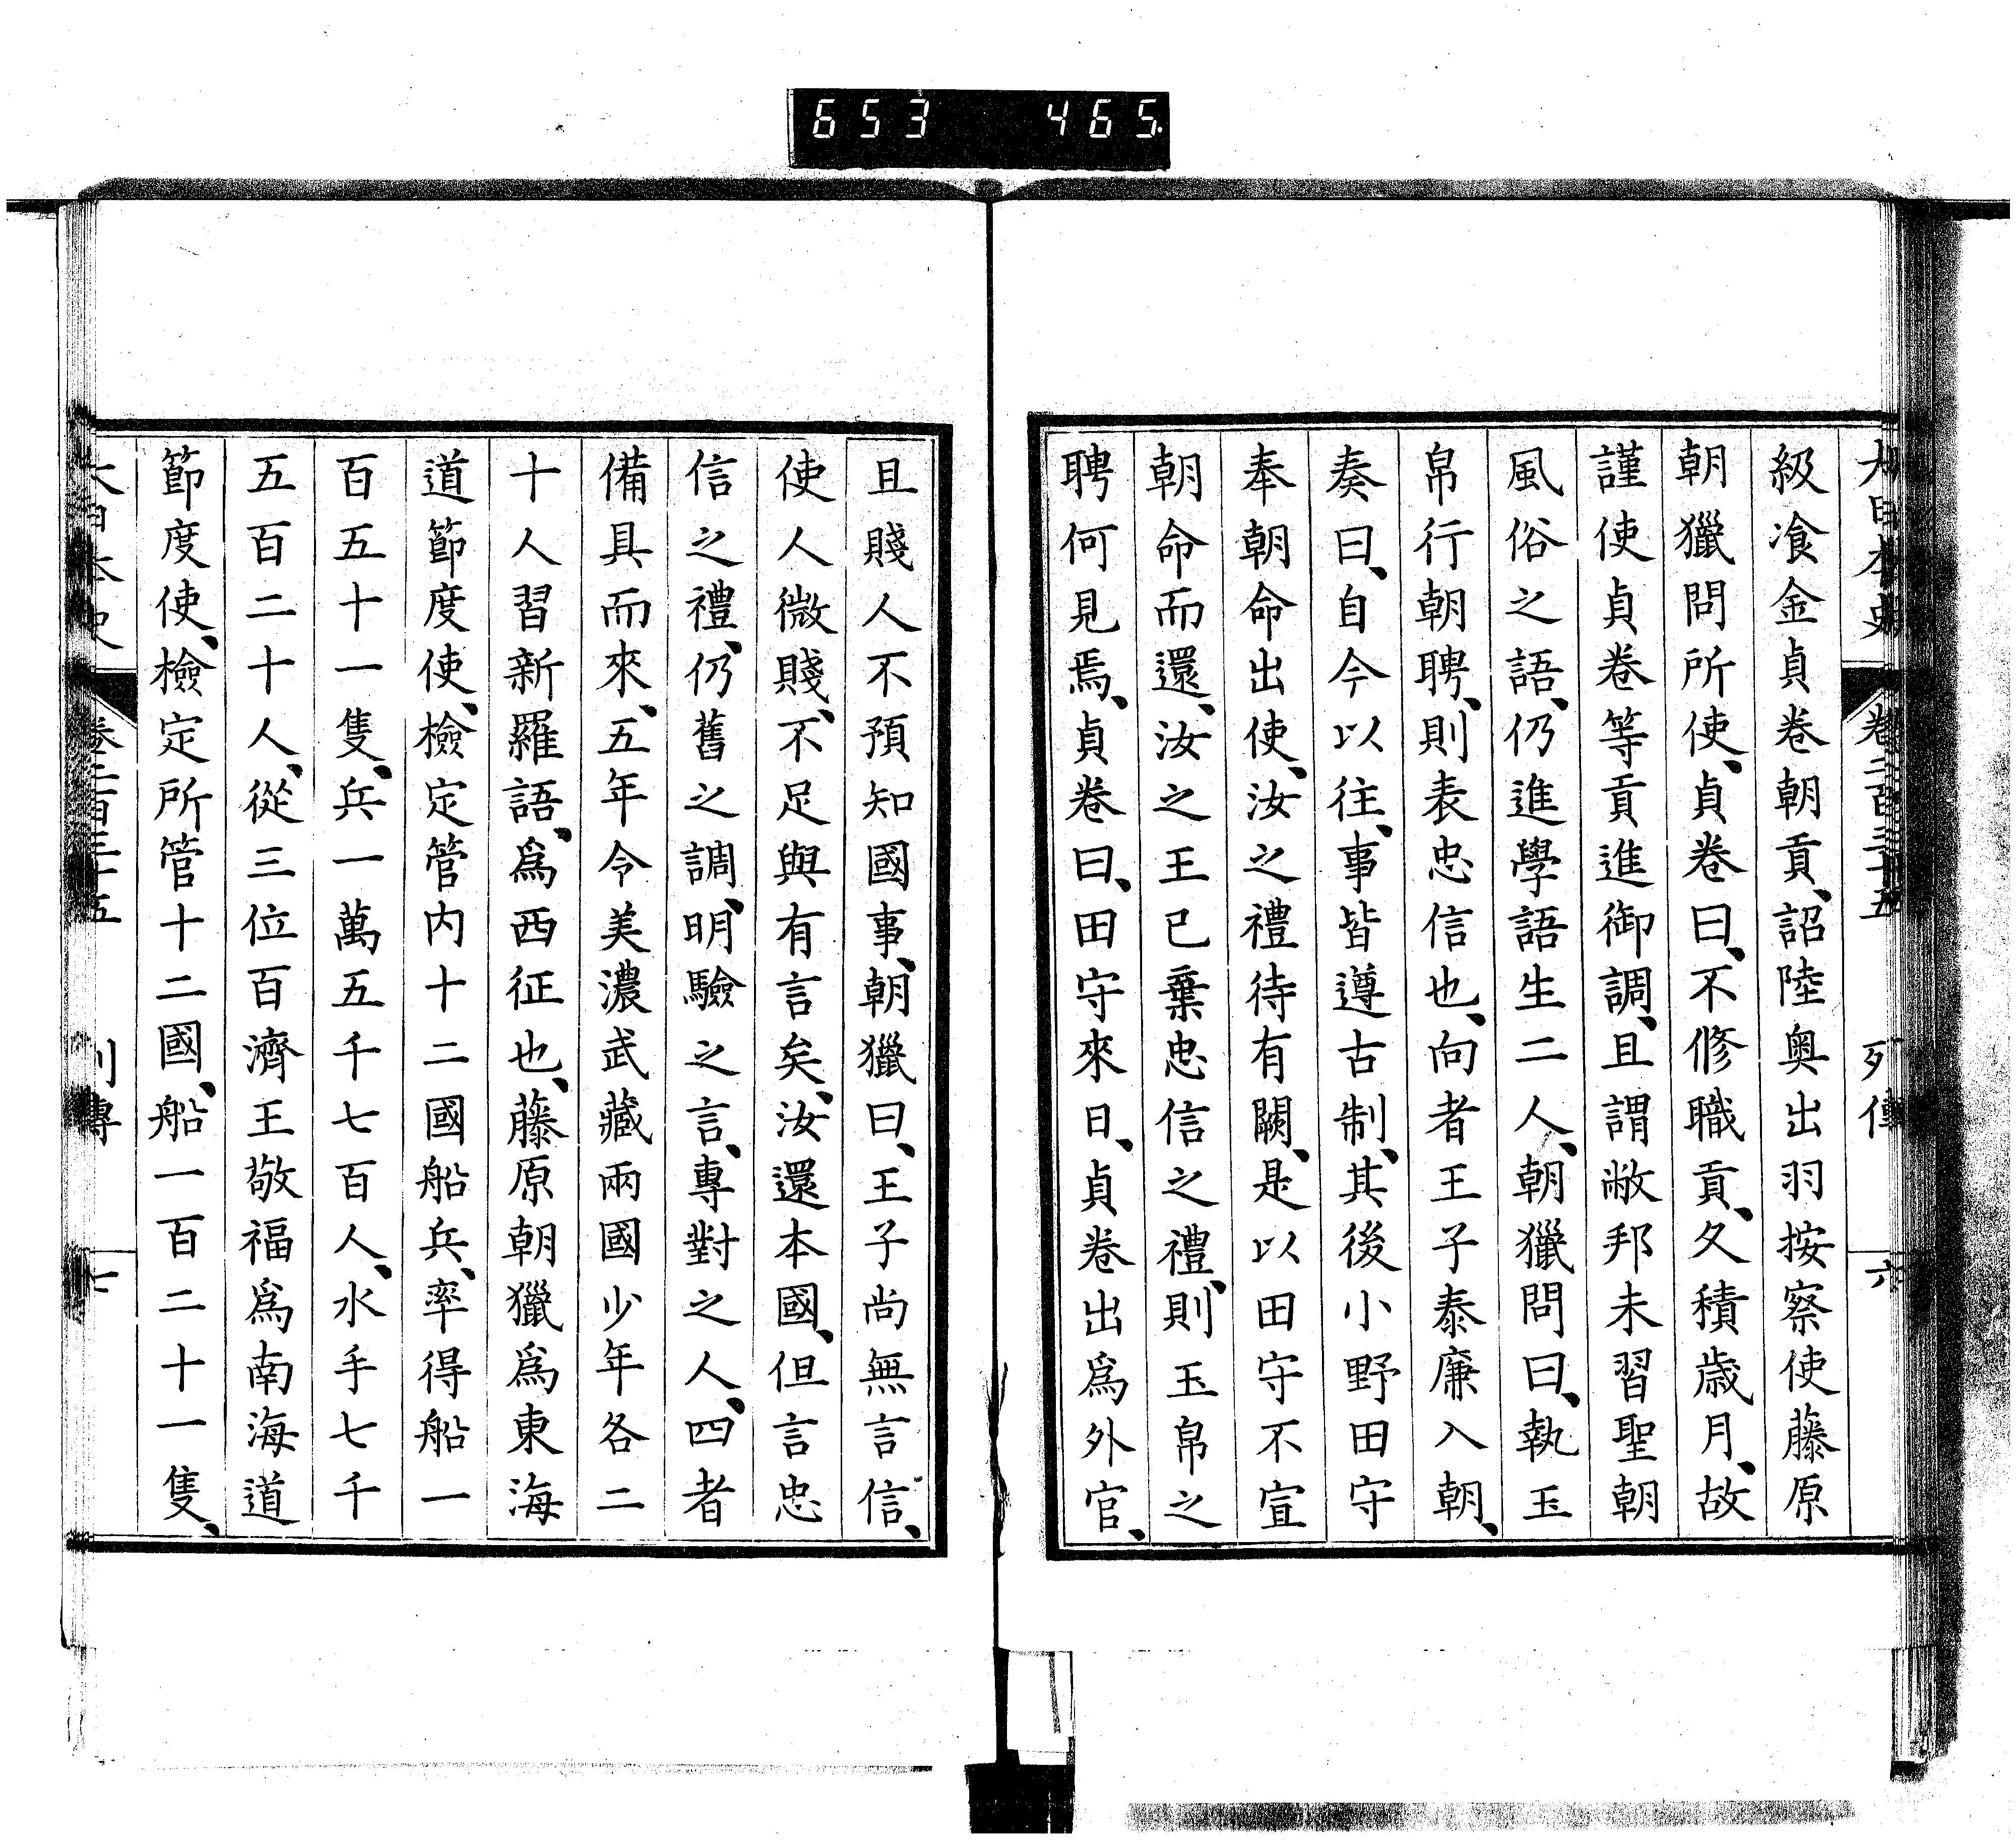 653 465
大日本史 卷二百三十五 列傳 六
級飡金貞卷朝貢、詔陸奥出羽按察使藤原
朝獵問所使、貞卷曰、不修職貢、久積歳月、故
謹使貞卷等貢進御調、且謂敝邦未習聖朝
風俗之語、仍進學語生二人、朝獵問曰、執玉
帛行朝聘、則表忠信也、向者王子泰廉入朝、
奏曰、自今以往、事皆遵古制、其後小野田守
奉朝命出使、汝之禮待有闕、是以田守不宣
朝命而還、汝之王已棄忠信之禮、則玉帛之
聘何見焉、貞卷曰、田守來日、貞卷出爲外官、
且賤人不預知國事、朝獵曰、王子尚無言信、
使人微賤、不足與有言矣、汝還本國、但言忠
信之禮、仍舊之調、明驗之言、專對之人、四者
備具而來、五年令美濃武藏兩國少年各二
十人習新羅語、爲西征也、藤原朝獵爲東海
道節度使、檢定管内十二國船兵、率得船一
百五十一隻、兵一萬五千七百人、水手七千
五百二十人、從三位百濟王敬福爲南海道
節度使、檢定所管十二國、船一百二十一隻、
大日本史 卷二百三十五 列傳 七